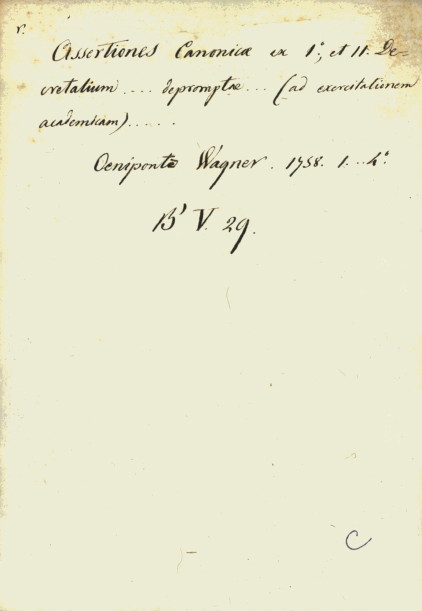 v.
Assertiones Canonicæ ex I°, et II. De-
cretalium .... depromptæ ... (ad exercitationem
academicam) .....
Oeniponte Wagner. 1758. 1...4°.
B' V. 29.
C